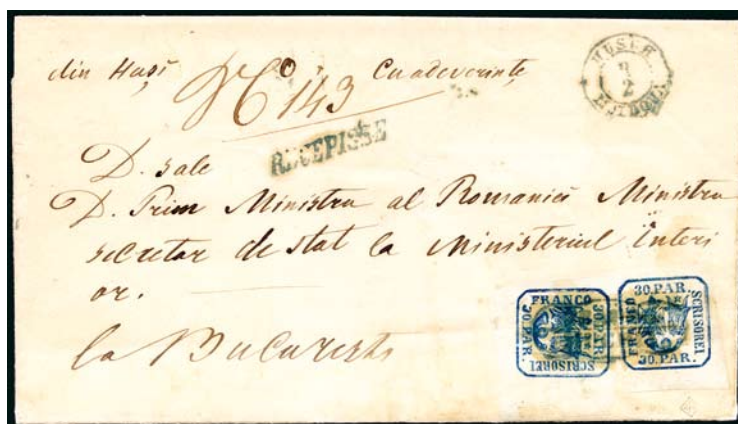 din Huși
Cu adeverințe
HUSII
8
2
MOLDOVA
No 143
RECEPISSE
D. sale
D. Prim Ministru al Romaniei Ministru
secretar de stat la Ministeriul Interi
or.
la Bucuresti
FRANCO
30.PAR.
30.PAR.
SCRISOREI
30.PAR.
FRANCO
SCRISOREI
30.PAR.